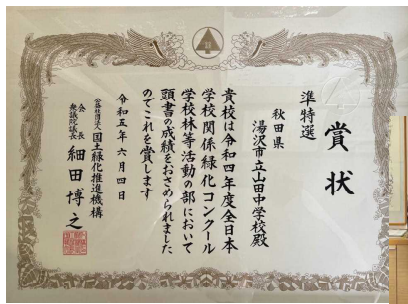 賞状
準特選
秋田県
湯沢市立山田中学校殿
貴校は令和四年度全日本
学校関係緑化コンクール
学校林等活動の部において
頭書の成績をおさめられました
のでこれを賞します
令和五年六月四日
公益社団法人 国土緑化推進機構
会長
衆議院議長 細田博之